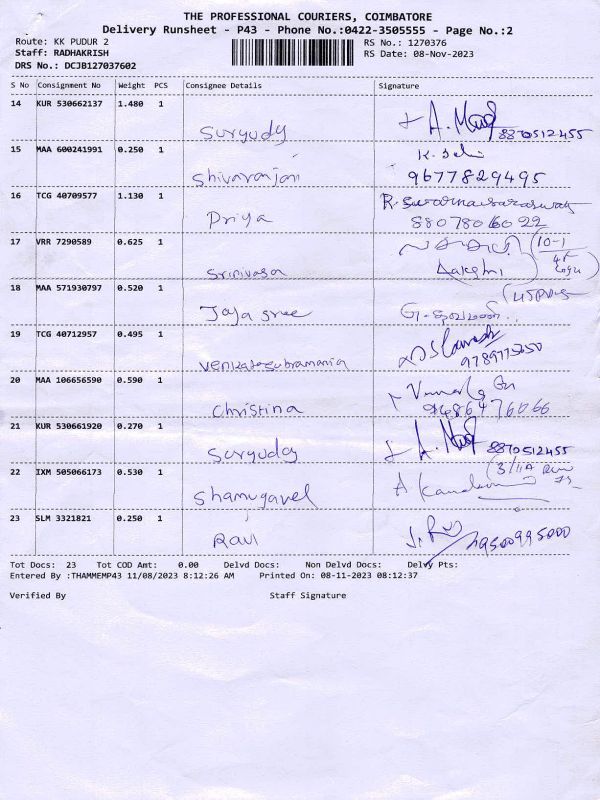 THE PROFESSIONAL COURIERS, COIMBATORE
Delivery Runsheet - P43 - Phone No.:0422-3505555 - Page No.:2
Route: KK PUDUR 2
RS No.: 1270376
Staff: RADHAKRISH
RS Date: 08-Nov-2023
DRS No.: DCJB127037602
S No Consignment No Weight PCS Consignee Details Signature
14 KUR 530662137 1.480 1
Suryuday 8870512455
15 MAA 600241991 0.250 1
Shivaranjani 9677829495
16 TCG 40709577 1.130 1
Priya 8807806022
17 VRR 7290589 0.625 1
Srinivasa
18 MAA 571930797 0.520 1
Jaya sree
19 TCG 40712957 0.495 1
Venkatasubramania
20 MAA 106656590 0.590 1
Christina 9486476066
21 KUR 530661920 0.270 1
Suryuday 8870512455
22 IXM 505066173 0.530 1
Shamugavel
23 SLM 3321821 0.250 1
Ravi 9500995000
Tot Docs: 23 Tot COD Amt: 0.00 Delvd Docs: Non Delvd Docs: Delvy Pts:
Entered By :THAMMEMP43 11/08/2023 8:12:26 AM Printed On: 08-11-2023 08:12:37
Verified By Staff Signature